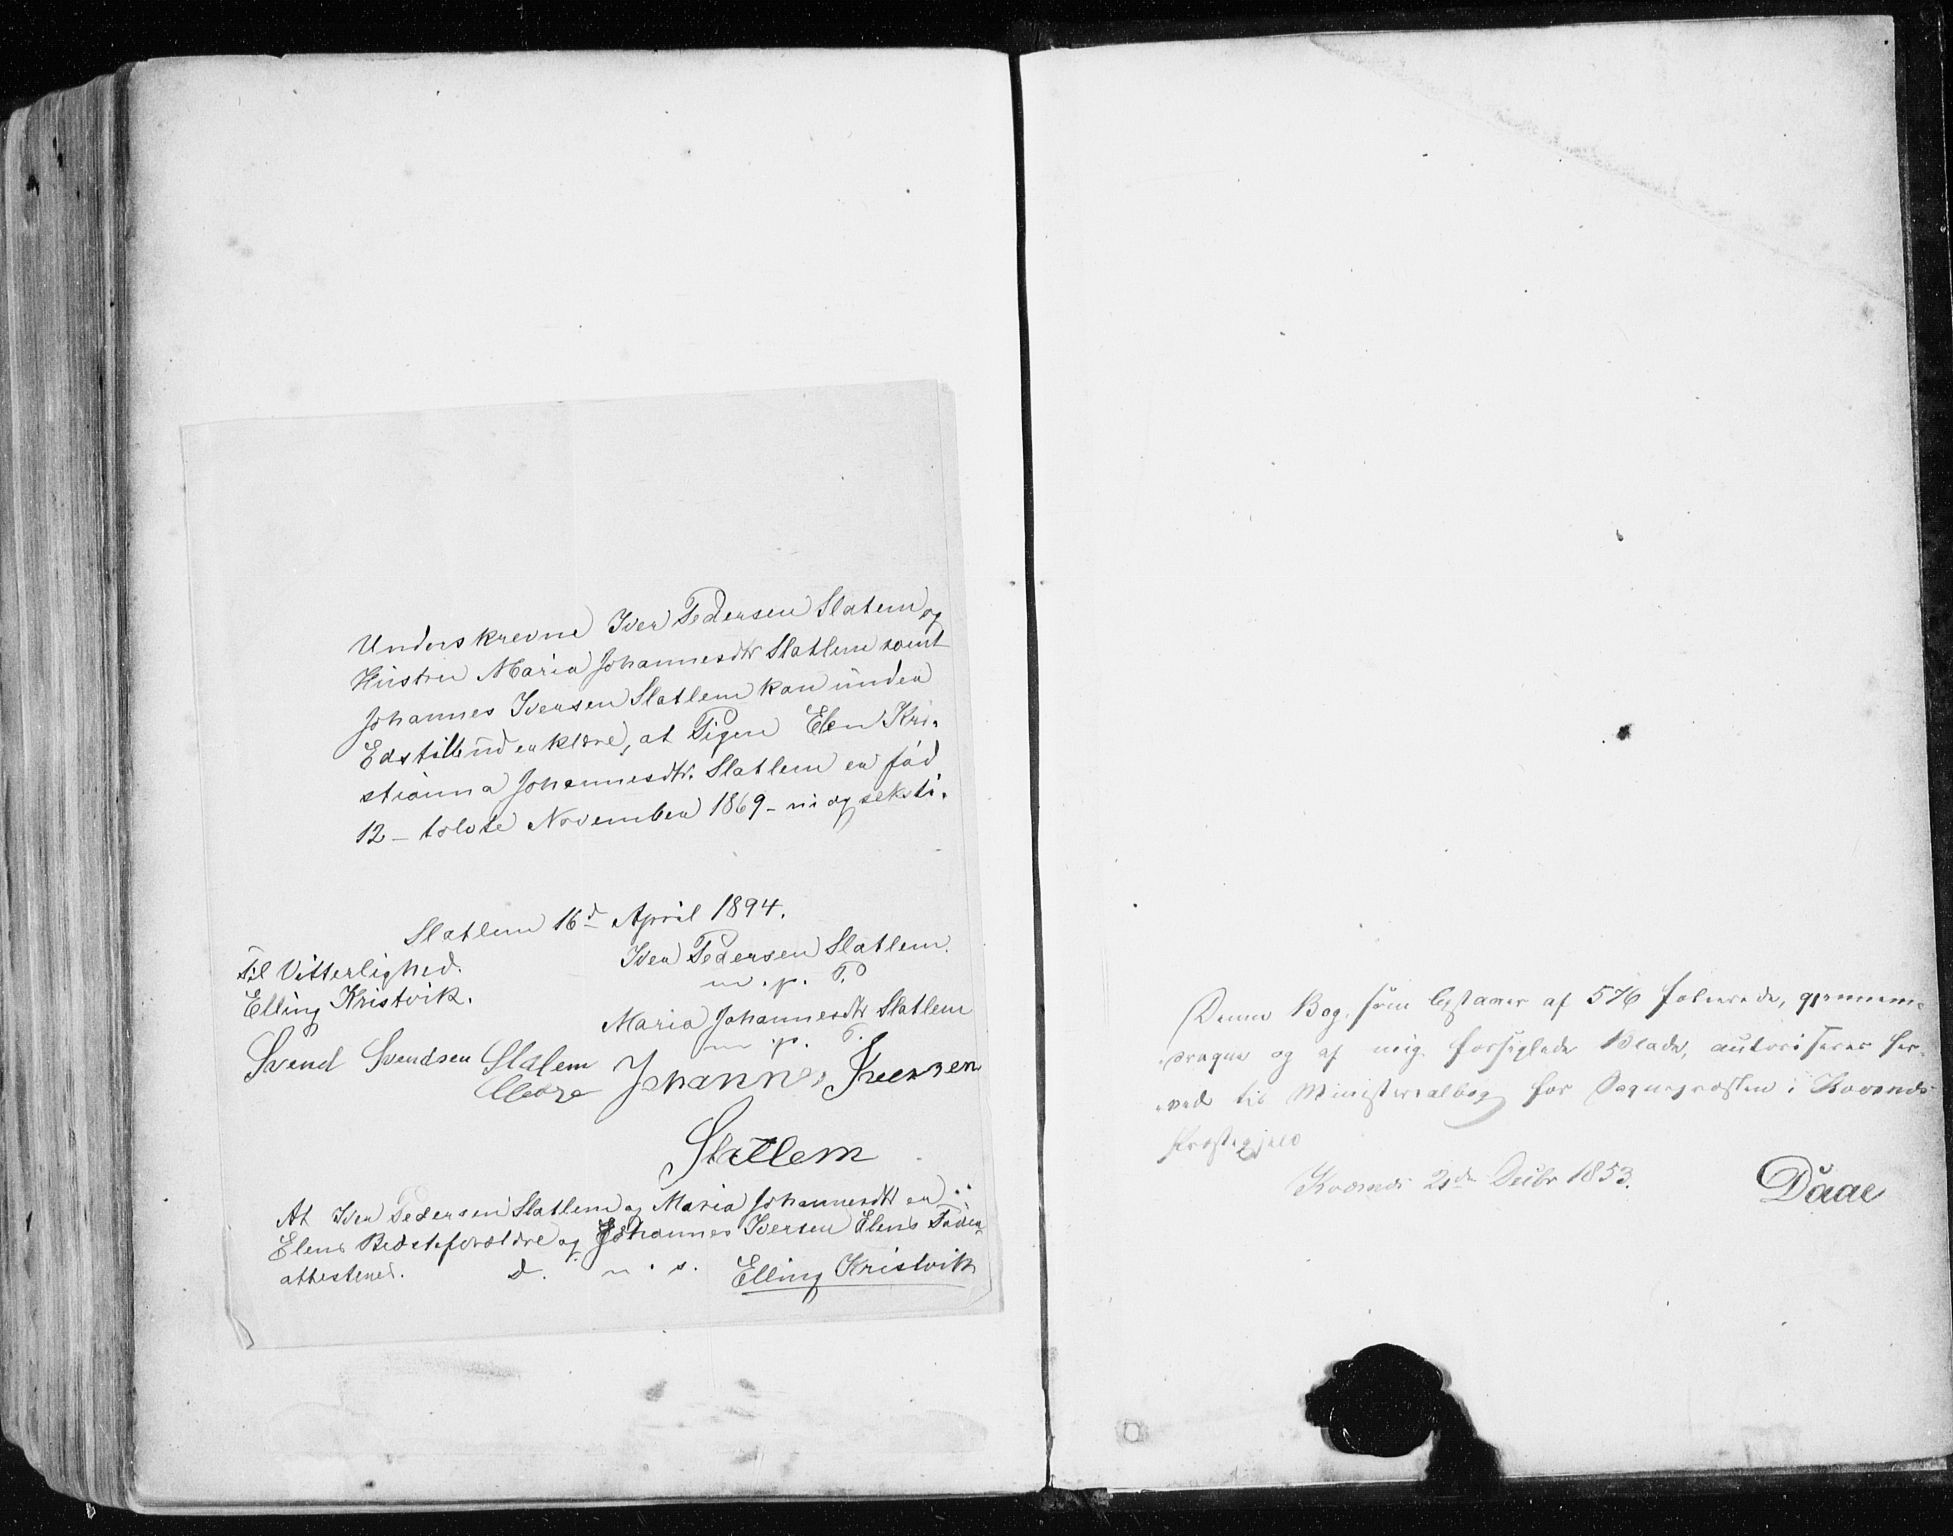 Underskrevne Iver Pedersen Slatem og
Hustru Maria Johannesdtr Slatlem samt
Johannes Iversen Slatlem kan under
Edstilbud erklære, at Pigen Elen Kri-
stianna Johannesdtr. Slatlem er fød
12 - tolvte November 1869 - ni og seksti.
Slatlem 16d April 1894.
Til Vitterlighed.
Iver Pedersen Slatlem.
m. p. P.
Elling Kristvik.
Maria Johannesdtr Slatlem
m. p. P.
Svend Svendsen Slatlem
Johannes Iversen
Slatlem
At Iver Pedersen Slatlem og Maria Johannesdtr er
Elens Bedsteforældre og Johannes Iversen Elens Fader
attesteres. d. u. s. Elling Kristvik
Denne Bog, som bestaaer af 576 folierede, gjennem-
dragne og af mig forseglede Blade, autoriseres her-
ved til Ministerialbog for Sognepræsten i Kværnes
Præstegjeld
Kværnes 2den Decbr 1853.
Daae